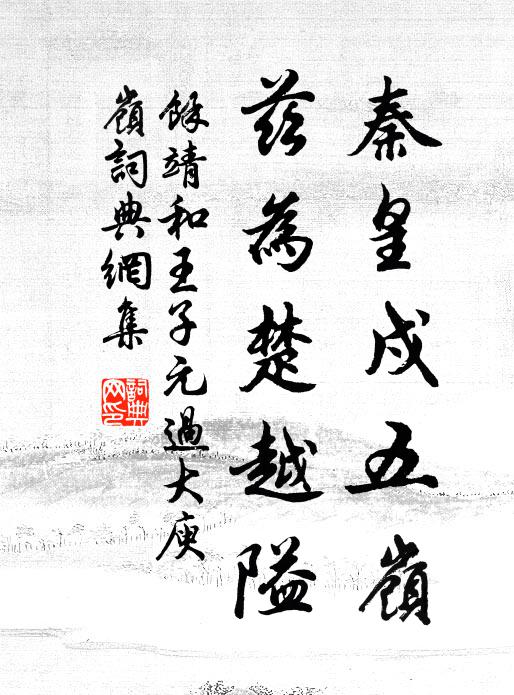 秦皇戍五嶺
茲為楚越隘
餘靖和王子元過大庾
嶺詞典網集
詞典網印